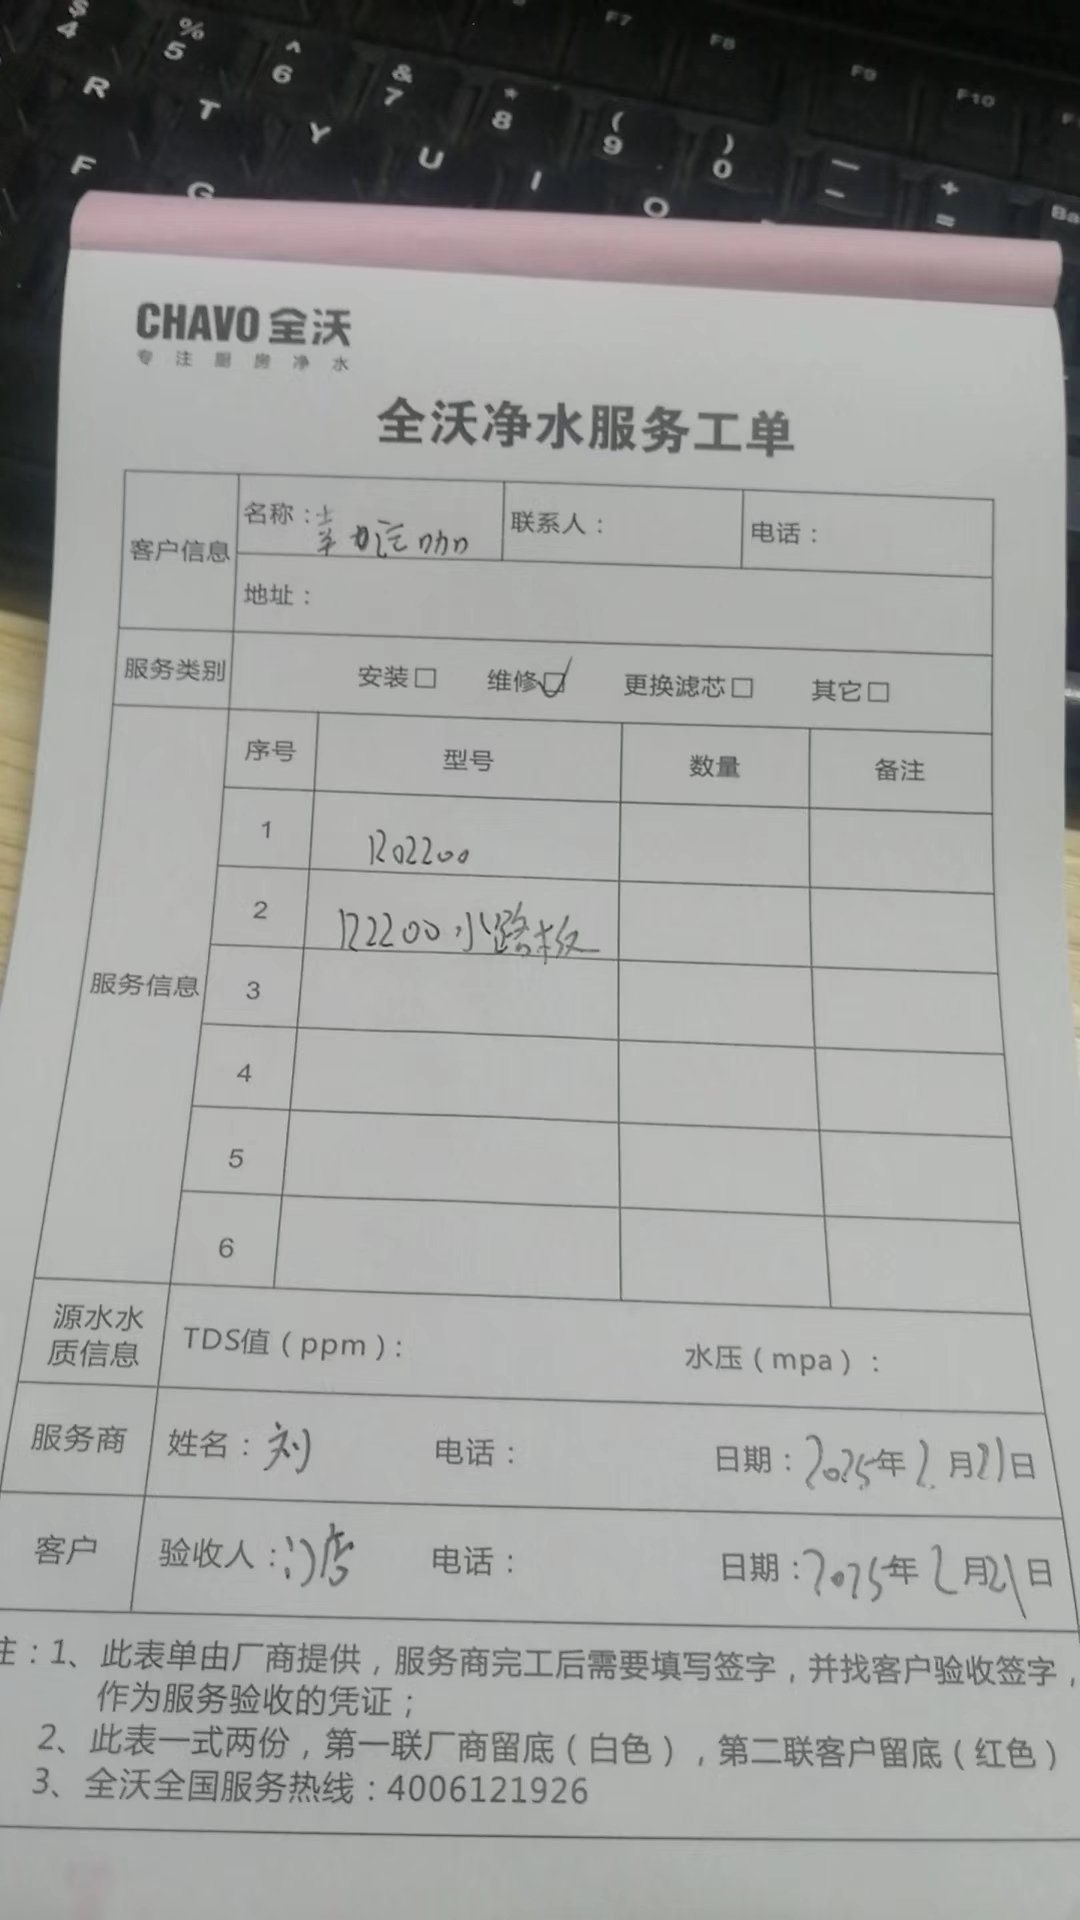 $ 4
% 5
^ 6
& 7
* 8
( 9
) 0
— -
+ =
F7
F8
F9
F10
Ba
R T Y U I O
F G
CHAVO 全沃
专注厨房净水
全沃净水服务工单
客户信息 名称：幸运咖 联系人： 电话：
地址：
服务类别 安装□ 维修☑ 更换滤芯□ 其它□
服务信息
序号 型号 数量 备注
1 R02200
2 R2200 水路板
3
4
5
6
源水水质信息 TDS值（ppm）： 水压（mpa）：
服务商 姓名：刘 电话： 日期：2025年2月21日
客户 验收人：门店 电话： 日期：2025年2月21日
注：1、此表单由厂商提供，服务商完工后需要填写签字，并找客户验收签字，
作为服务验收的凭证；
2、此表一式两份，第一联厂商留底（白色），第二联客户留底（红色）
3、全沃全国服务热线：4006121926